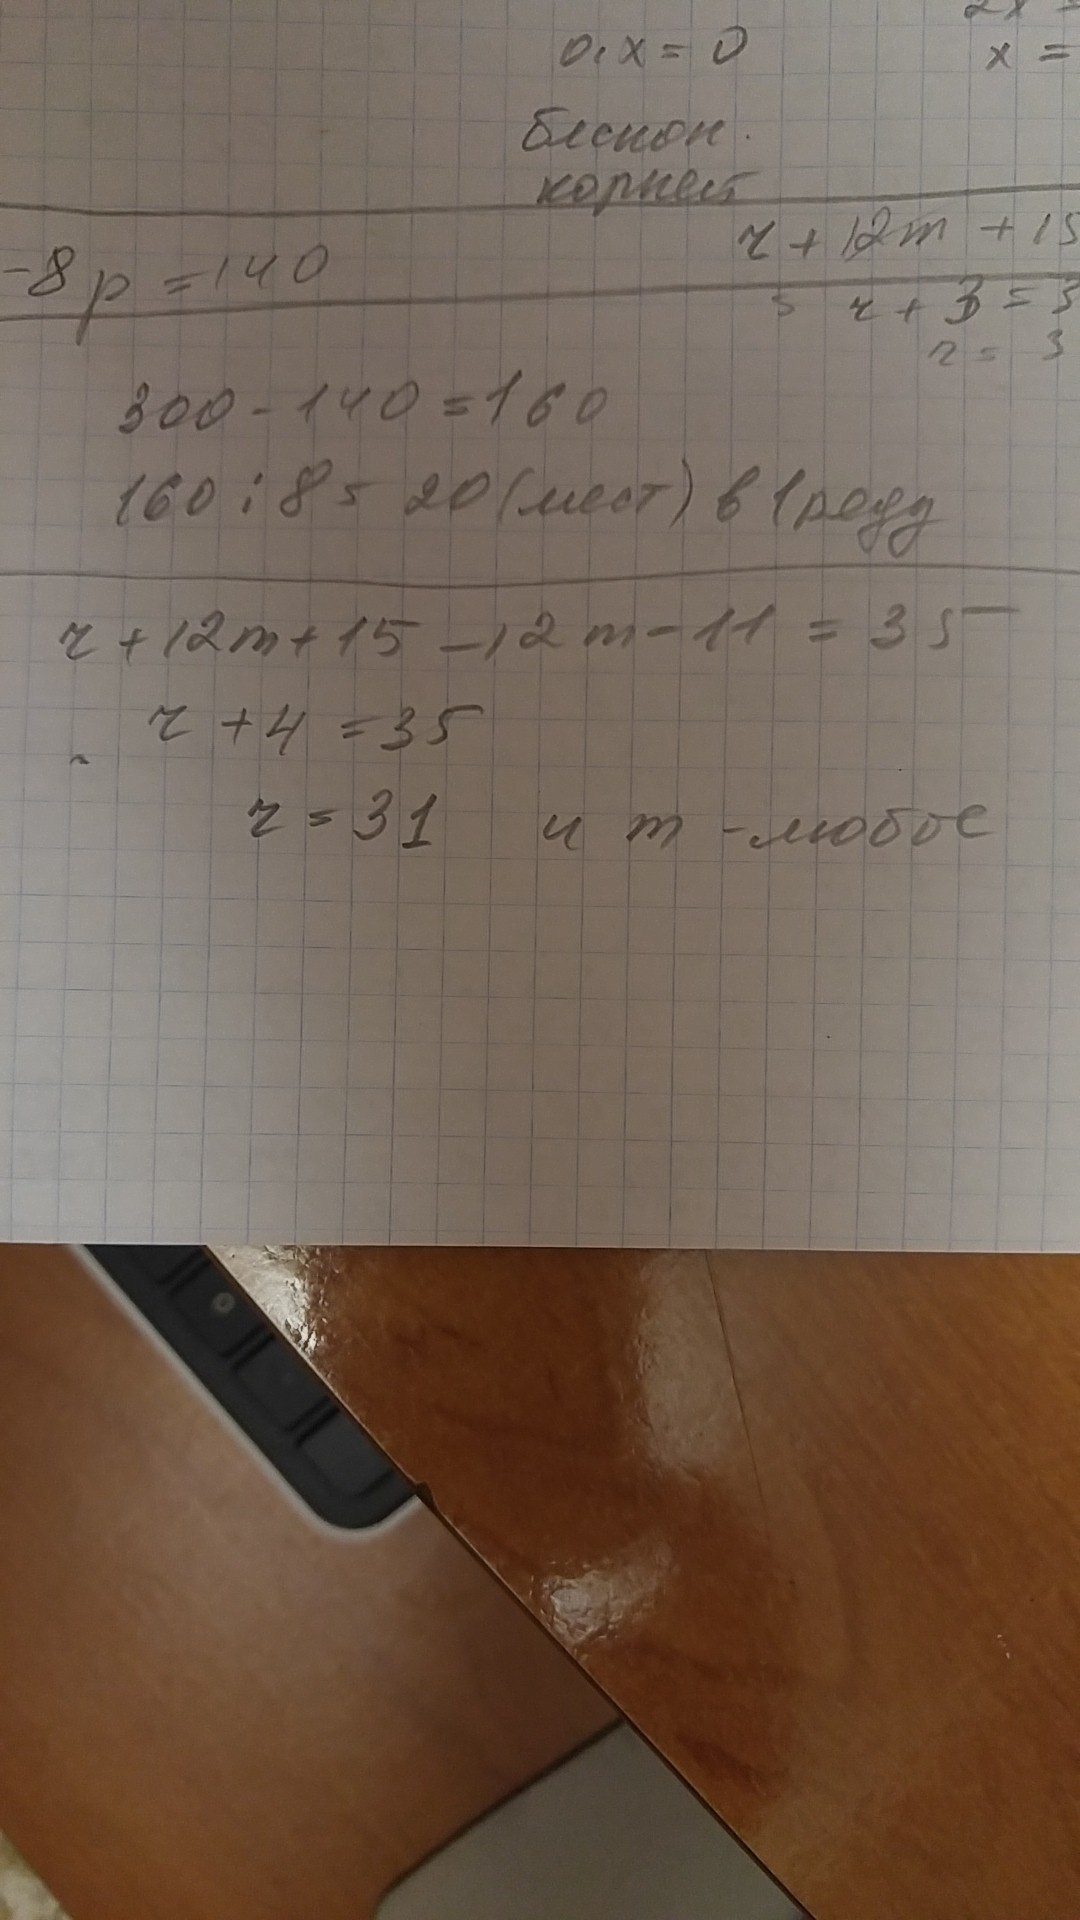 2x =
0.x = 0
x =
бескон.
корней
r + 12m + 15
-8p = 140
r + 3 = 3
r = 3
300 - 140 = 160
160 : 8 = 20 (мест) в 1 ряду
r + 12m + 15 - 12m - 11 = 35
r + 4 = 35
r = 31 и m - любое